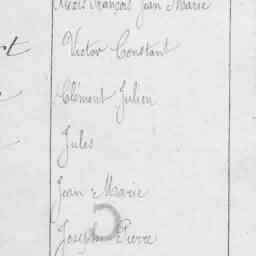 Alexis François Jean Marie
Victor Constant
Clément Julien
Jules
Jean Marie
Joseph Pierre